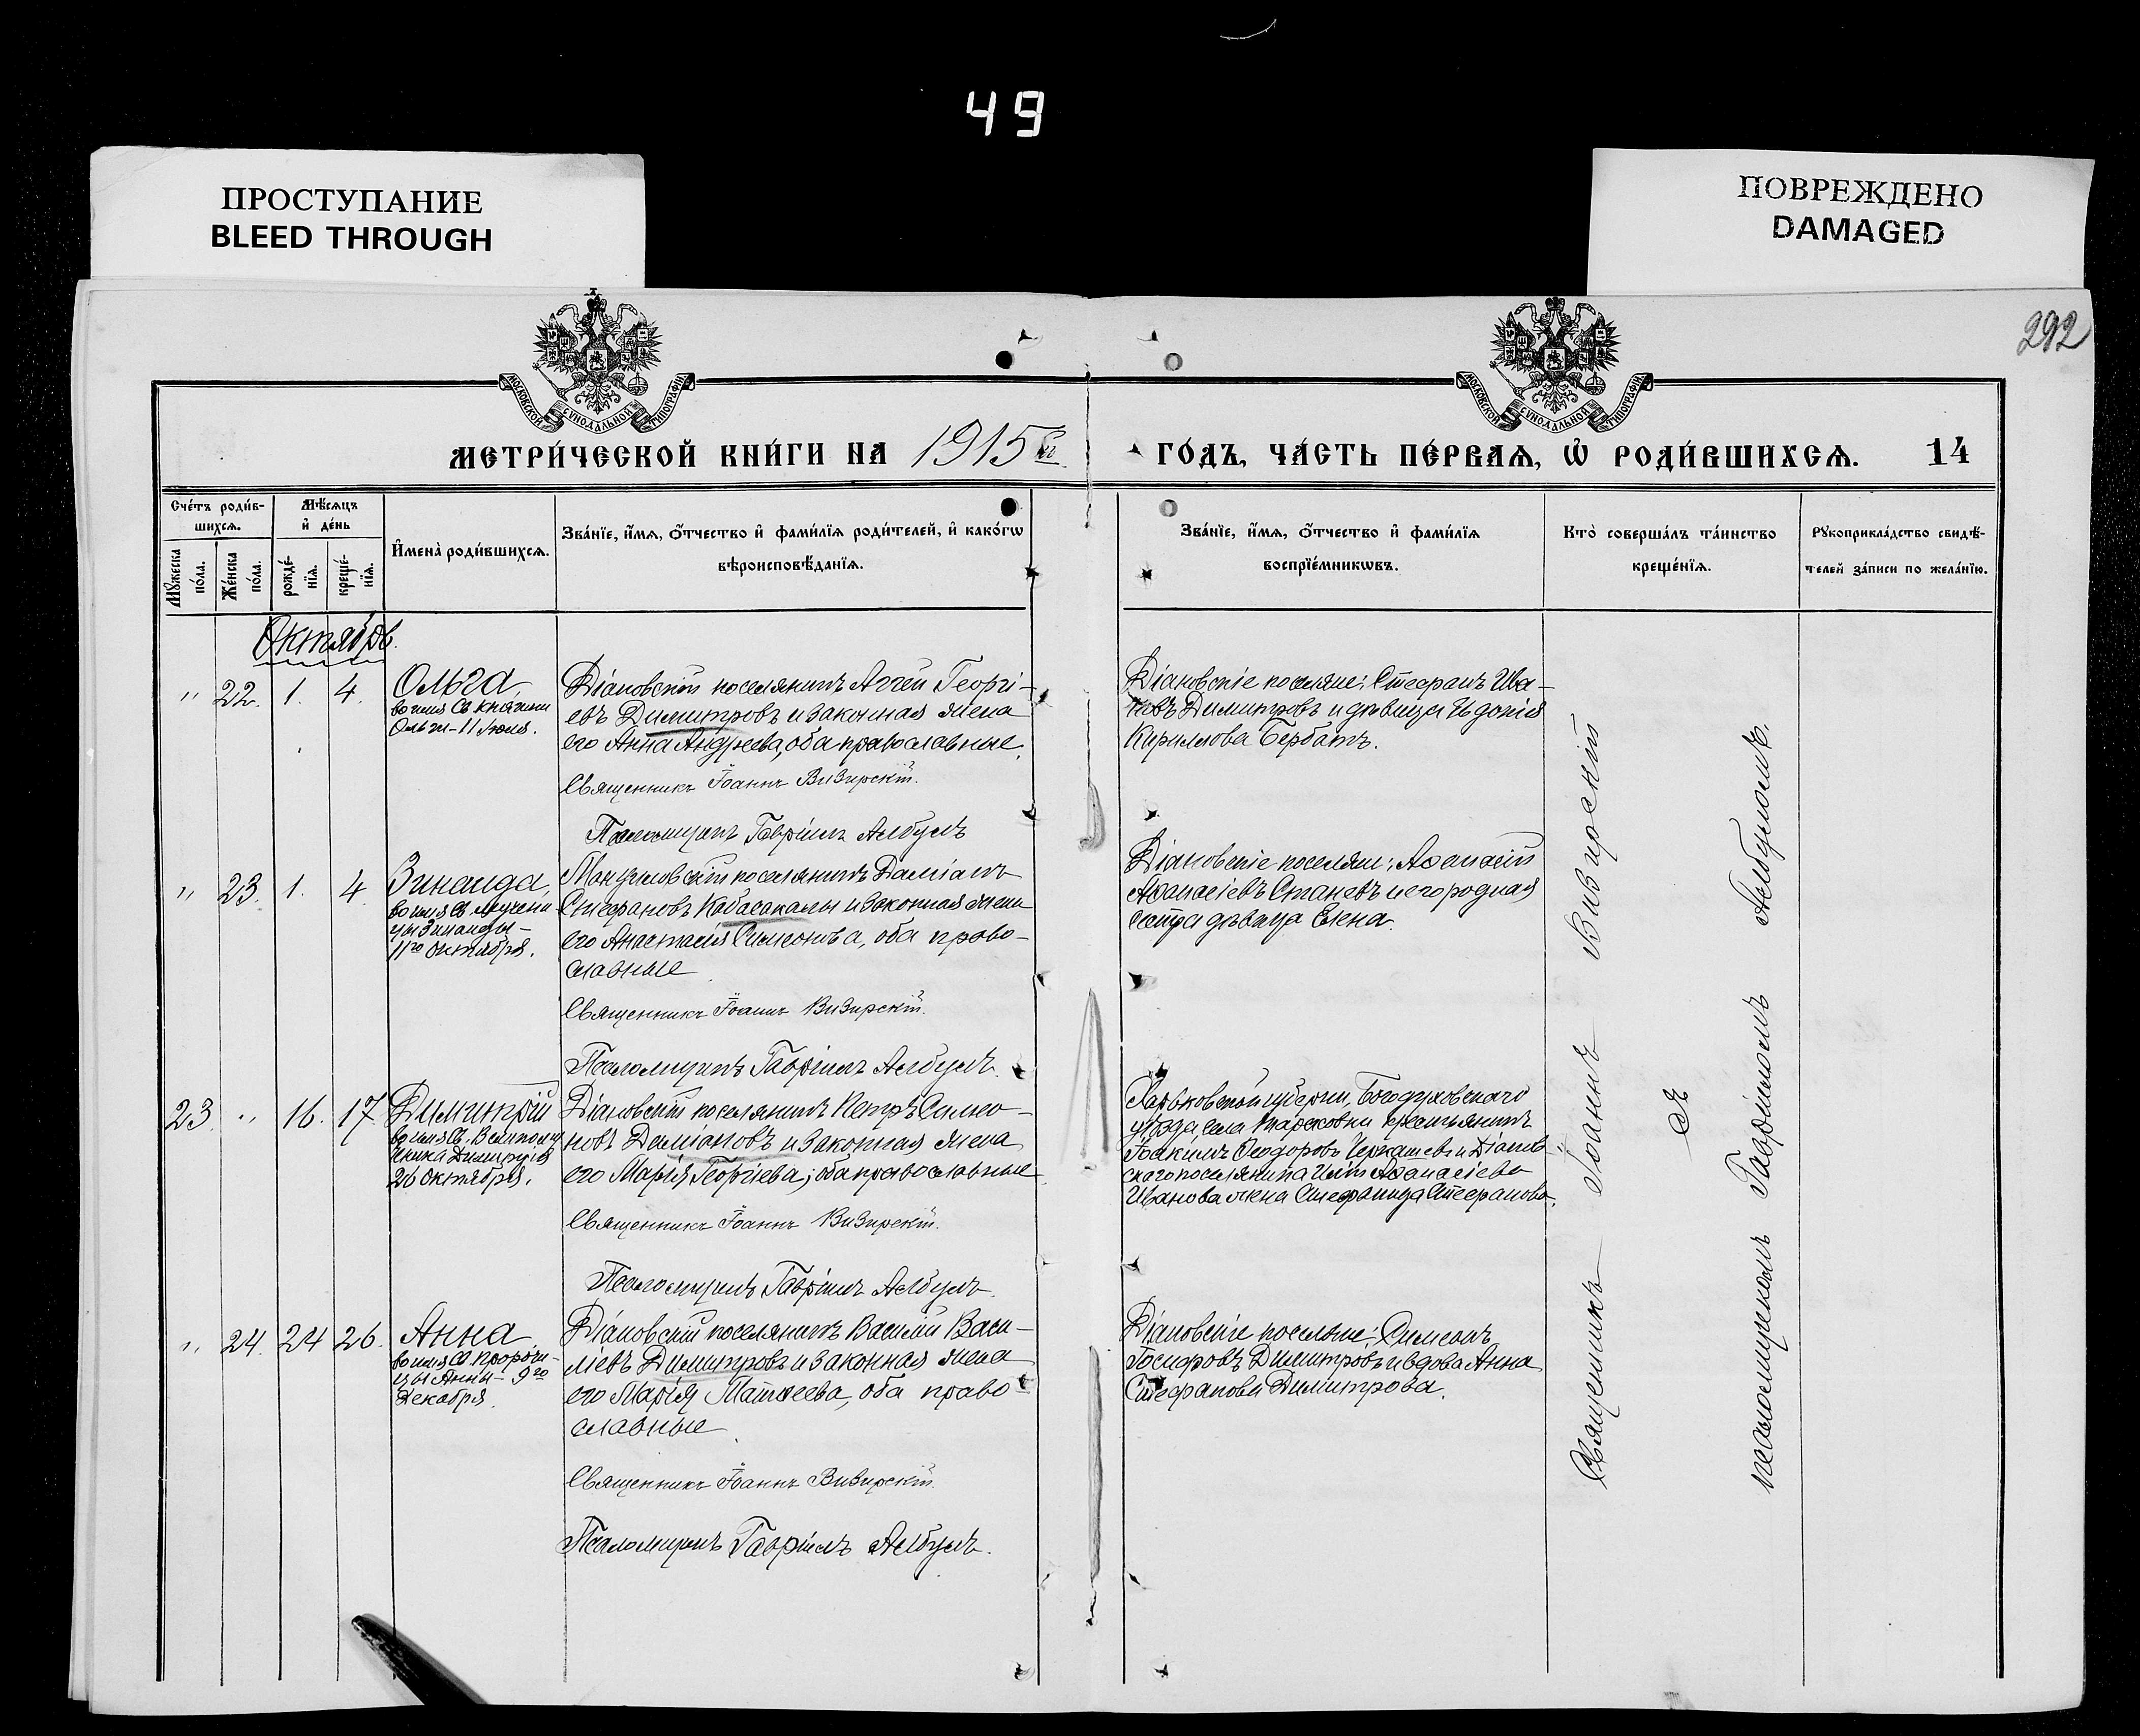 49
ПРОСТУПАНИЕ
BLEED THROUGH
ПОВРЕЖДЕНО
DAMAGED
292
МОСКОВСКОЙ СѴНОДАЛЬНОЙ ТИПОГРАФІИ
МОСКОВСКОЙ СѴНОДАЛЬНОЙ ТИПОГРАФІИ
МЕТРИ́ЧЕСКОЙ КНИ́ГИ НА 1915й ГО́ДЪ, ЧА́СТЬ ПЕ́РВАѦ, Ѡ҆ РОДИ́ВШИХСѦ. 14
Сче́тъ роди́в-
шихсѧ.
Мꙋ́жеска по́ла.
Же́нска по́ла.
Мѣ́сѧцъ
и҆ де́нь
рожде́-нїѧ.
креще́-нїѧ.
И҆мена̀ роди́вшихсѧ.
Зва́нїе, и҆́мѧ, ѻ҆́тчество и҆ фами́лїѧ роди́телей, и҆ како́гѡ
вѣроисповѣ́данїѧ.
Зва́нїе, и҆́мѧ, ѻ҆́тчество и҆ фами́лїѧ
воспрїе́мникѡвъ.
Кто̀ соверша́лъ та́инство
креще́нїѧ.
Рꙋкоприкла́дство свидѣ́-
телей за́писи по жела́нїю.
Октябрь.
" 22. 1. 4.
Ольга,
во имя Св. Княгини
Ольги - 11 Июля.
Діановскій поселянинъ Аггей Георгі-
евъ Димитровъ и законная жена
его Анна Андреева, оба православные.
Священникъ Іоаннъ Визирскій.
Псаломщикъ Гавріилъ Албулъ
Діановскіе поселяне: Стефанъ Ива-
новъ Димитровъ и дѣвица Евдокія
Кириллова Бербатъ.
" 23. 1. 4
Зинаида,
во имя Св. Мучени
цы Зинаиды -
11го Октября.
поселянинъ Даміанъ
Стефановъ Кабасакалы и законная жена
его Анастасія Симеонова, оба право-
славные
Священникъ Іоаннъ Визирскій.
Псаломщикъ Гавріилъ Албулъ.
Діановскіе поселяне: Аѳанасій
Аѳанасіевъ Станевъ и его родная
сестра дѣвица Елена.
23. " 16. 17.
Димитрій
во имя Св. Великому
ченика Димитрія
26 Октября.
Діановскій поселянинъ Петръ Симео-
новъ Даміановъ и законная жена
его Марія Георгіева, оба православные
Священникъ Іоаннъ Визирскій.
Псаломщикъ Гавріилъ Албулъ.
Харьковской губерніи, Богодуховскаго
уѣзда села крестьянинъ
Іоакимъ Ѳеодоровъ и Діанов-
скаго поселянина Иліи Аѳанасіева
Иванова жена Стефанида Стефанова.
" 24. 24 26.
Анна
во имя Св. Пророчи-
цы Анны - 9го
Декабря.
Діановскій поселянинъ Василій Васи-
ліевъ Димитровъ и законная жена
его Марія Матѳеева, оба право-
славные
Священникъ Іоаннъ Визирскій.
Псаломщикъ Гавріилъ Албулъ.
Діановскіе поселяне: Симеонъ
Іосифовъ Димитровъ и вдова Анна
Стефанова Димитрова.
Священникъ Іоаннъ Визирскій
съ
псаломщикомъ Гавріиломъ Албуломъ.